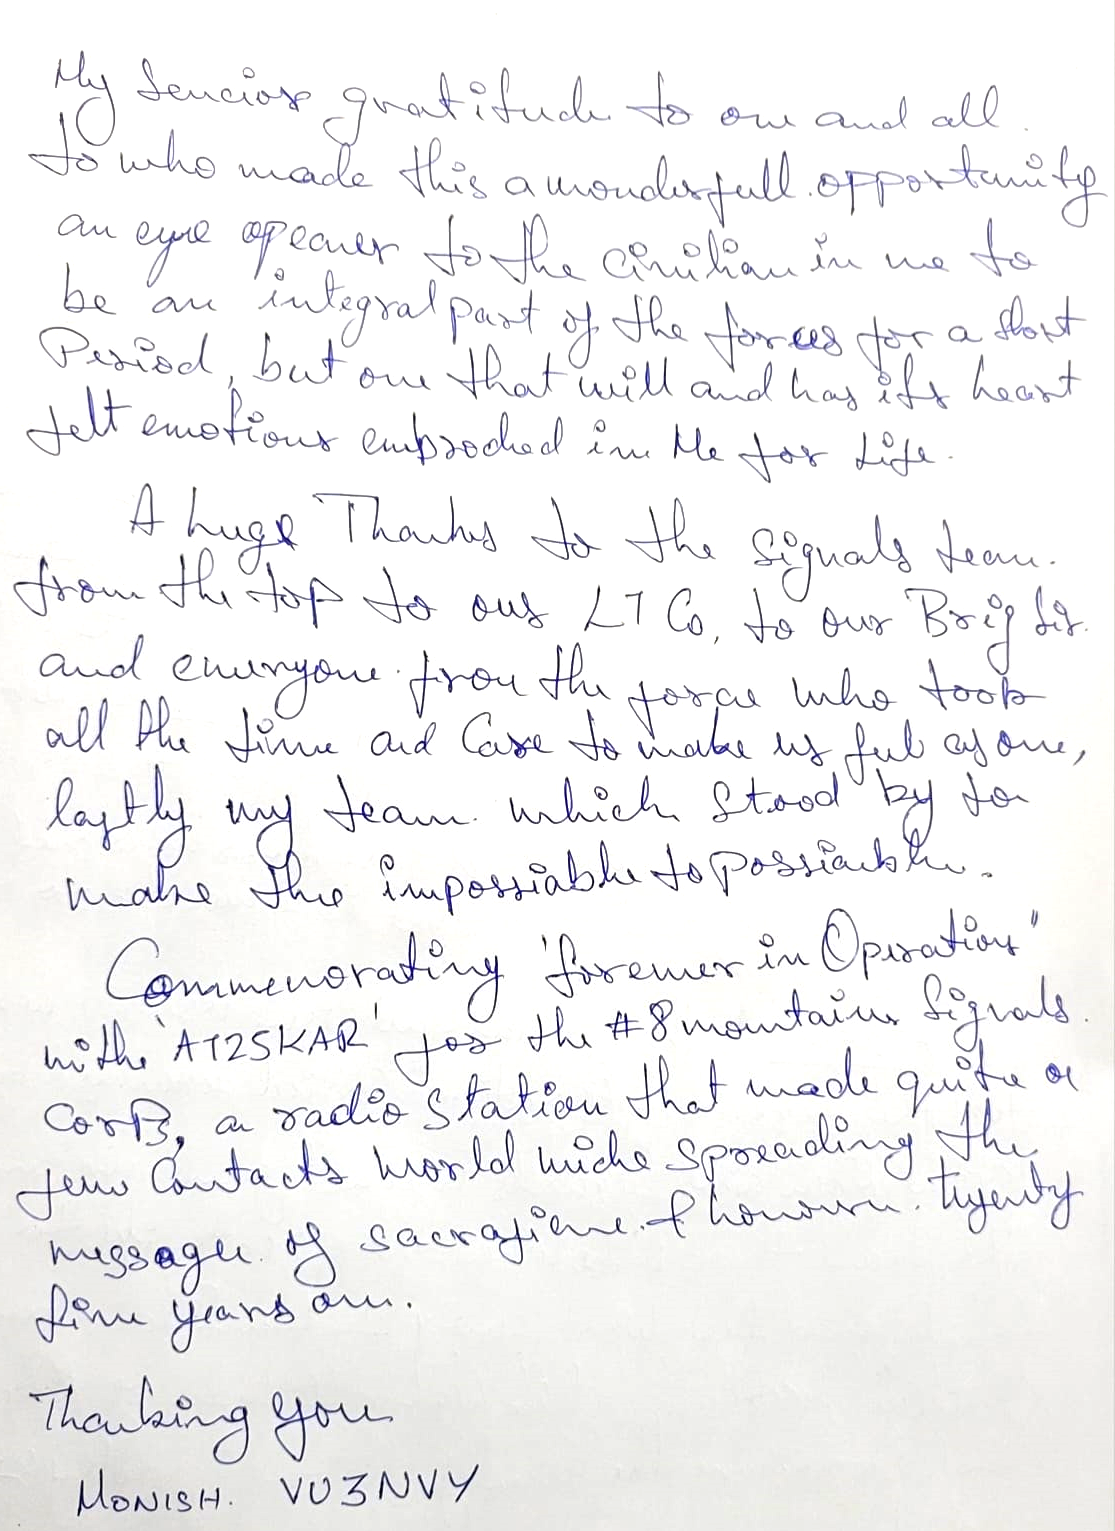 My Sencior gratitude to one and all.
to who made this a wonderfull opportunity
an eyre opeaner to the Civilian in me to
be an integral part of the forces for a short
Period, but one that will and has its heart
felt emotions embroched in Me for Life.
A huge Thanks to the Signals team.
from the top to our LT Co, to our Brig Sir.
and everyone from the force who took
all the time and Care to make us feel as one,
lastly my team which Stood by to
make the impossiable to possiable.
Commemorating 'forever in Operation"
withe 'AT25KAR' for the #8 mountain Signals.
CorPs, a radio Station that made quite a
few Contacts World wide spreading the
message of sacrafice & honour. twenty
five years on.
Thanking you
MONISH. VU3NVY